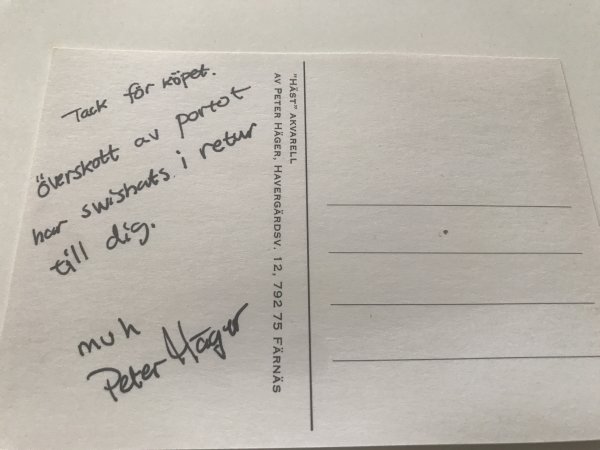 Tack för köpet.
Överskott av portot
har swishats i retur
till dig.
mvh
Peter Häger
"HÄST" AKVARELL
AV PETER HÄGER, HAVERGÅRDSV. 12, 792 75 FÄRNÄS